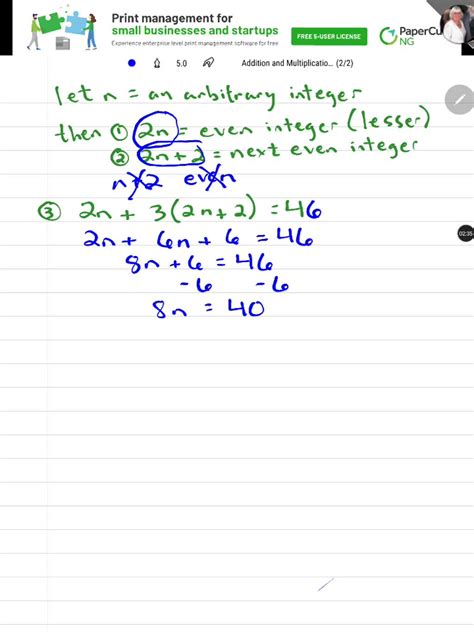 Print management for
small businesses and startups
Experience enterprise level print management software for free
FREE 5-USER LICENSE
PaperCu
NG
5.0 Addition and Multiplicatio... (2/2)
let n = an arbitrary integer
then ① 2n = even integer (lesser)
② 2n + 2 = next even integer
n+2 even
③ 2n + 3(2n+2) = 46
02:35
2n + 6n + 6 = 46
8n + 6 = 46
-6 -6
8n = 40